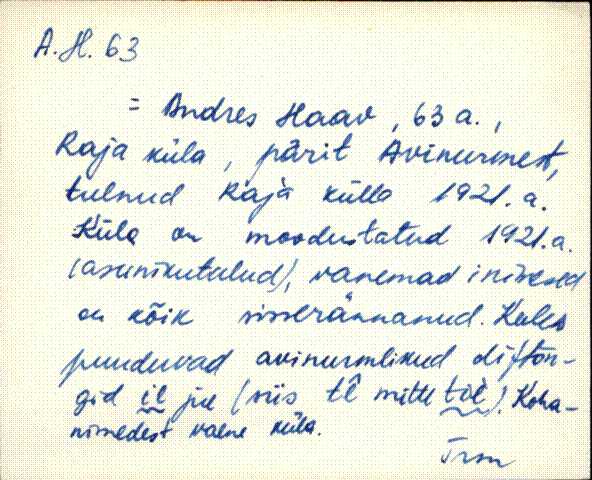 A.H. 63
= Andres Haav, 63 a.,
Raja küla, pärit Avinurmest,
tulnud Raja külla 1921. a.
Küla on moodustatud 1921. a.
(asunikutalud), vanemad inimesed
on kõik sisserännanud. Keeles
puuduvad avinurmlikud difton-
gid ie jne (siis tē mitte tie). Koha-
nimedest vaene küla.